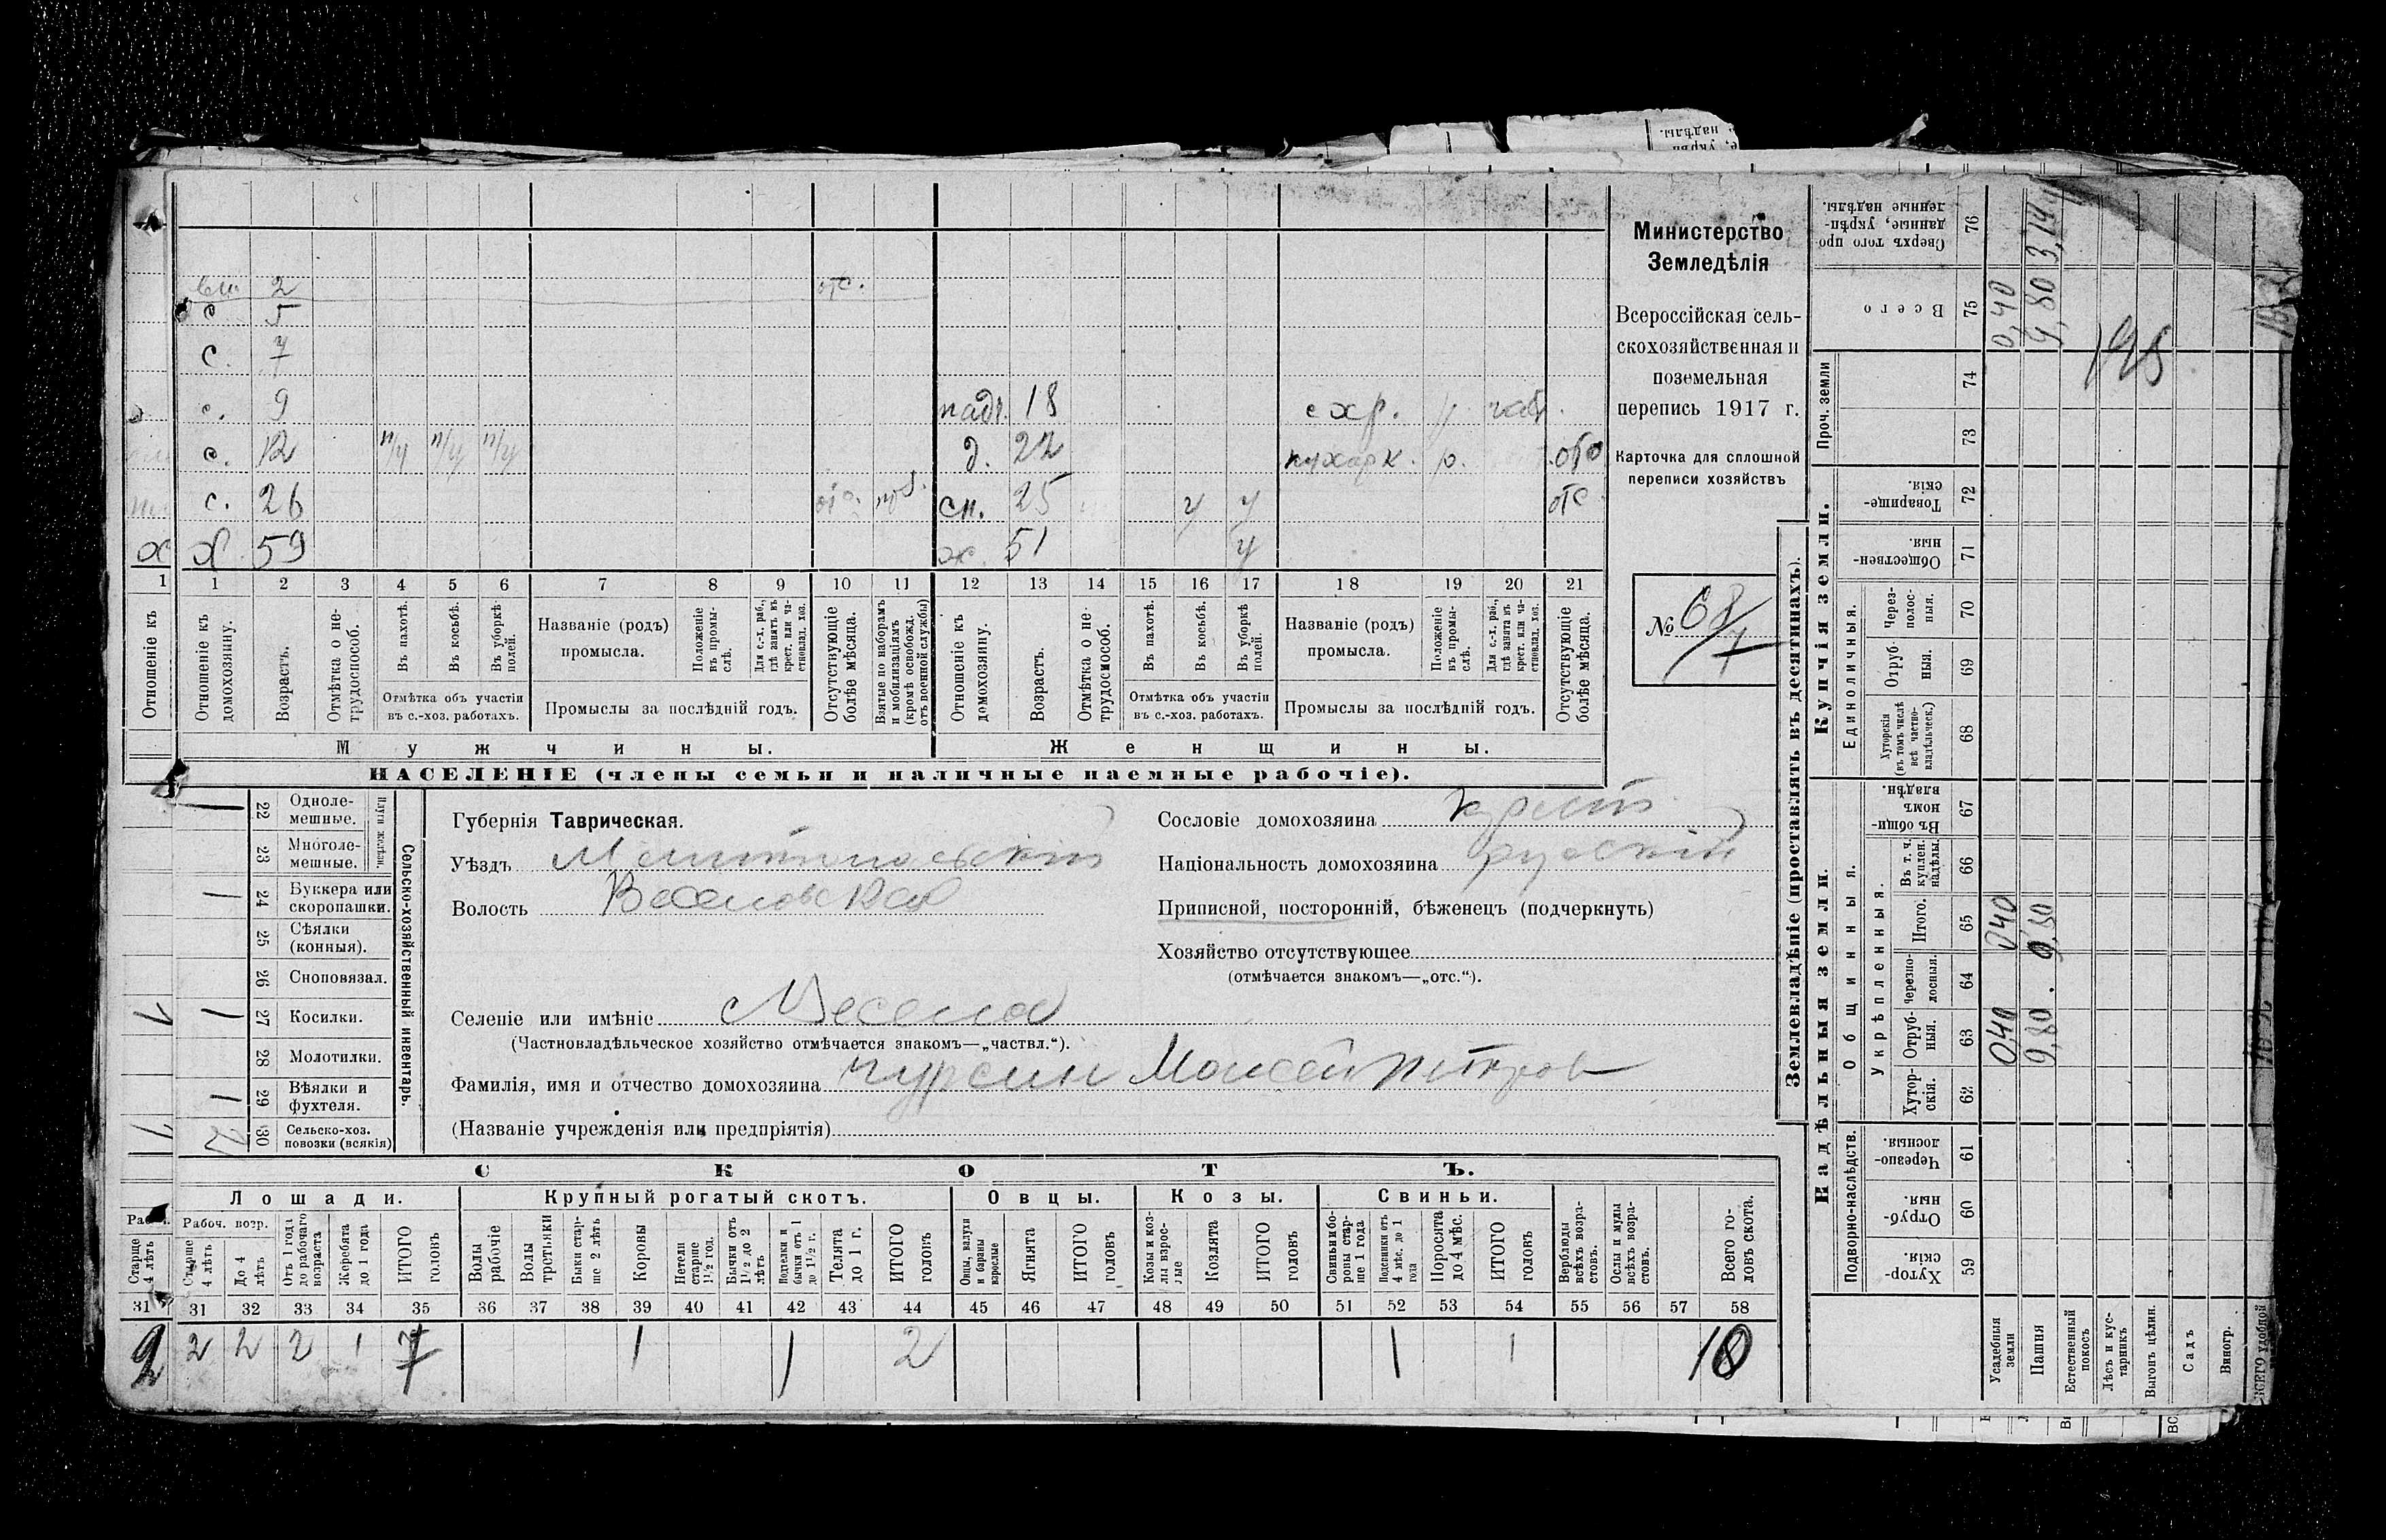 2 отс.
с. 5
с. 7
с. 9 падч. 18 с хр. р.
с. 12 п/у п/у п/у д. 22 кухарк. р. отс
с. 26 отс. моб. сн. 25 у у отс.
х. 59 ж. 51 у
1 1 2 3 4 5 6 7 8 9 10 11 12 13 14 15 16 17 18 19 20 21
Отношеніе къ
Отношеніе къ домохозяину.
Возрастъ.
Отмѣтка о не-
трудоспособ.
Въ пахотѣ.
Въ косьбѣ.
Въ уборкѣ
полей.
Отмѣтка объ участіи
въ с.-хоз. работахъ.
Названіе (родъ)
промысла.
Положеніе
въ промы-
слѣ.
Для с.-х. раб.,
гдѣ занятъ въ
крест. или ча-
стновлад. хоз.
Промыслы за послѣдній годъ.
Отсутствующіе
болѣе мѣсяца.
Взятые по наборамъ
и мобилизаціямъ
(кромѣ освобожд.
отъ военной службы)
Отношеніе къ
домохозяину.
Возрастъ.
Отмѣтка о не-
трудоспособ.
Въ пахотѣ.
Въ косьбѣ.
Въ уборкѣ
полей.
Отмѣтка объ участіи
въ с.-хоз. работахъ.
Названіе (родъ)
промысла.
Положеніе
въ промы-
слѣ.
Для с.-х. раб.,
гдѣ занята въ
крест. или ча-
стновлад. хоз.
Промыслы за послѣдній годъ.
Отсутствующіе
болѣе мѣсяца.
Мужчины.
Женщины.
НАСЕЛЕНІЕ (члены семьи и наличные наемные рабочіе).
Министерство
Земледѣлія
Всероссійская сель-
скохозяйственная и
поземельная
перепись 1917 г.
Карточка для сплошной
переписи хозяйствъ
№ 68/7
22 Одноле-
мешные.
1
23 Многоле-
мешные.
24 Буккера или
скоропашки.
1
25 Сѣялки
(конныя).
26 Сноповязал.
27 Косилки.
1
28 Молотилки.
29 Вѣялки и
фухтеля.
1
30 Сельско-хоз.
повозки (всякія)
2
Сельско-хозяйственный инвентарь.
Губернія Таврическая.
Уѣздъ Мелитопольскій
Волость Веселовская
Селеніе или имѣніе с Веселое
(Частновладѣльческое хозяйство отмѣчается знакомъ—„частвл.“).
Фамилія, имя и отчество домохозяина Чурсин Моисей Петров
(Названіе учрежденія или предпріятія)
Сословіе домохозяина крест.
Національность домохозяина русскій
Приписной, посторонній, бѣженецъ (подчеркнуть)
Хозяйство отсутствующее
(отмѣчается знакомъ—„отс.“).
СКОТЪ.
Лошади.
Крупный рогатый скотъ.
Овцы.
Козы.
Свиньи.
Рабоч. возр.
Старше
4 лѣтъ
Старше
4 лѣтъ
До 4
лѣтъ
Отъ 1 года
до рабочаго
возраста
Жеребята
до 1 года
ИТОГО
головъ
Волы
рабочіе
Волы
третьяки
Быки стар-
ше 2 лѣтъ
Коровы
Нетели
старше
1½ год.
Бычки отъ
1½ до 2
лѣтъ
Подтелки и
бычки отъ 1
до 1½ г.
Телята
до 1 г.
ИТОГО
головъ
Овцы, валухи
и бараны
взрослые
Ягнята
ИТОГО
головъ
Козы и коз-
лы взрос-
лые
Козлята
ИТОГО
головъ
Свиньи и бо-
ровы стар-
ше 1 года
Подсвинки отъ
4 мѣс. до 1
года
Поросята
до 4 мѣс.
ИТОГО
головъ
Верблюды
всѣхъ возра-
стовъ.
Ослы и мулы
всѣхъ возра-
стовъ.
Всего го-
ловъ скота.
31 31 32 33 34 35 36 37 38 39 40 41 42 43 44 45 46 47 48 49 50 51 52 53 54 55 56 57 58
2 2 2 2 1 7 1 1 2 1 1 10
Землевладѣніе (проставлять въ десятинахъ).
Надѣльныя земли.
Купчія земли.
Подворно-наслѣдств.
Общинныя.
Укрѣпленныя.
Единоличныя.
Проч. земли
Хутор-
скія. 59
Отруб-
ныя. 60
Черезпо-
лосныя. 61
Хутор-
скія. 62
Отруб-
ныя. 63
Черезпо-
лосныя. 64
Итого. 65
Въ т. ч.
куплен.
надѣлы. 66
Въ общи-
номъ
владѣн. 67
Хуторскія
(въ томъ числѣ
всѣ частно-
владѣльческ.) 68
Отруб-
ныя. 69
Через-
полос-
ныя. 70
Обществен-
ныя. 71
Товарище-
скія. 72
73
74
Всего 75
Сверхъ того про-
данные, укрѣп-
ленные надѣлы. 76
Усадебныя
земли
040 040 0,40
Пашня
9,80 9,80 9,80 3,14
Естественный
покосъ
Лѣсъ и кус-
тарникъ
Выгонъ цѣлин.
Садъ
Виногр.
ВСЕГО удобной